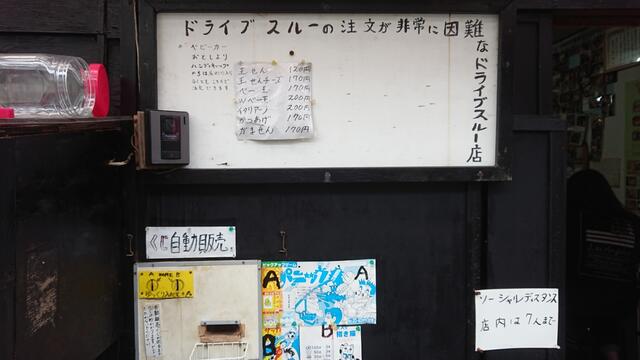 ドライブスルーの注文が非常に困難
なドライブスルー店
ベビーカー
おとしより
玉せん 120円
玉せんチーズ 170円
ベー玉 170円
Wベー玉 200円
イタリアーノ 200円
かつあげ 170円
がません 170円
自動販売
A
B
ゆっくり入れて
パニック
A
A
B
ソーシャルディスタンス
店内は7人まで